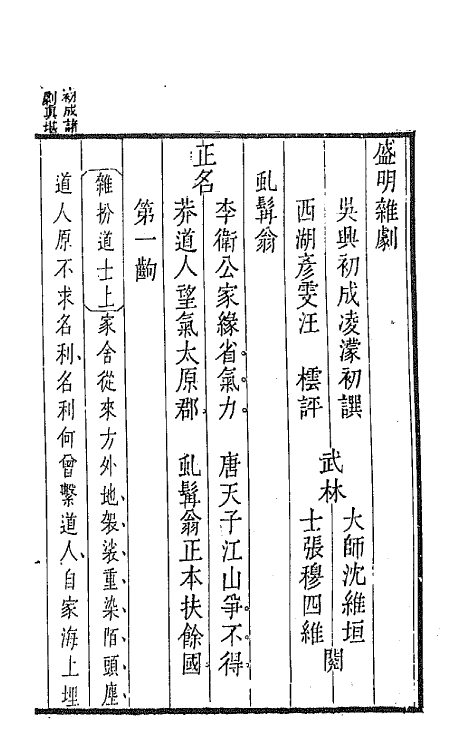 盛明雜劇
吳興初成凌濛初譔
西湖彥雯汪　樗評
武林
大師沈維垣
士張穆四維
閱
虬髯翁
正名
李衛公家緣省氣力　唐天子江山爭不得
莽道人望氣太原郡　虬髯翁正本扶餘國
第一齣
雜扮道士上家舍從來方外地袈裟重染陌頭塵
道人原不求名利名利何曾繫道人自家海上埋
初成諸
劇眞堪